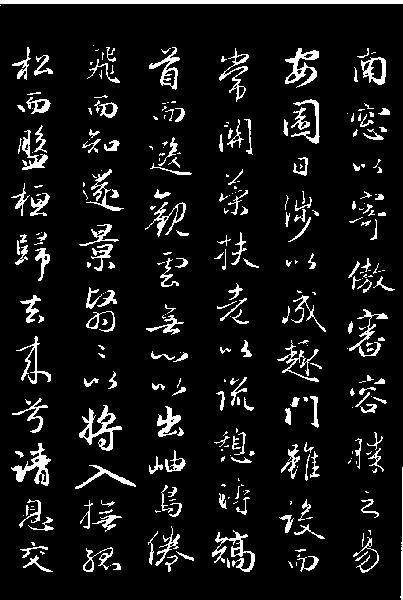 南窓以寄傲審容膝之易
安園日涉以成趣門雖設而
常關策扶老以流憩時矯
首而遐觀雲無心以出岫鳥倦
飛而知還景翳〻以將入撫孤
松而盤桓歸去来兮請息交